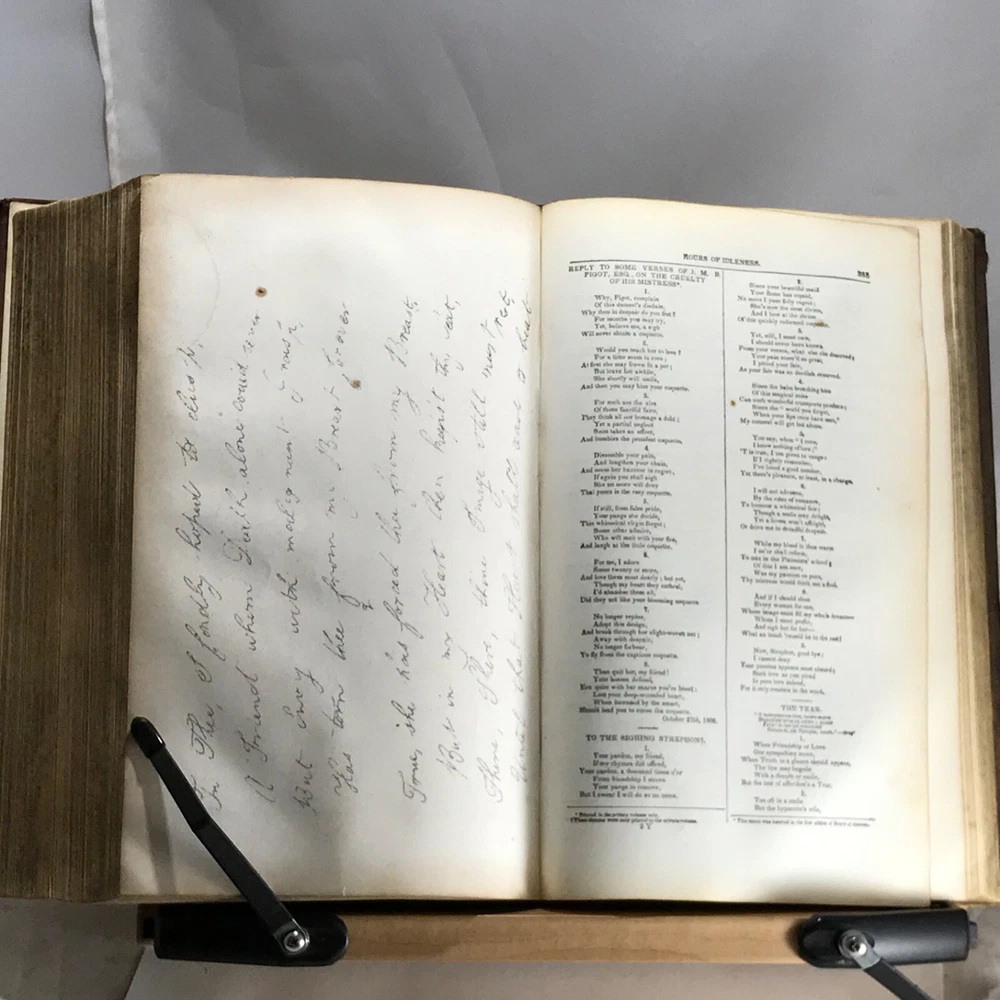 In Thee, I fondly hoped to clasp
A Friend whom Death alone could sever
But envy with malignant grasp
Has torn thee from my Breast for ever
True, she has forced thee from my Breast,
But in my Heart thou keepst thy seat,
There, There, thine Image still must rest,
Until that Heart shall cease to beat
HOURS OF IDLENESS.
REPLY TO SOME VERSES OF J. M. B
PIGOT, ESQ., ON THE CRUELTY
OF HIS MISTRESS*.
1.
Why, Pigot, complain
Of this damsel's disdain,
Why thus in despair do you fret?
For months you may try,
Yet, believe me, a sigh
Will never obtain a coquette.
2.
Would you teach her to love?
For a time seem to rove;
At first she may frown in a pet;
But leave her awhile,
She shortly will smile,
And then you may kiss your coquette.
3.
For such are the airs
Of these fanciful fairs,
They think all our homage a debt;
Yet a partial neglect
Soon takes an effect,
And humbles the proudest coquette.
4.
Dissemble your pain,
And lengthen your chain,
And seem her hauteur to regret;
If again you shall sigh
She no more will deny
That yours is the rosy coquette.
5.
If still, from false pride,
Your pangs she deride,
This whimsical virgin forget;
Some other admire,
Who will melt with your fire,
And laugh at the little coquette.
6.
For me, I adore
Some twenty or more,
And love them most dearly; but yet,
Though my heart they enthral,
I'd abandon them all,
Did they act like your blooming coquette
7.
No longer repine,
Adopt this design,
And break through her slight-woven net;
Away with despair,
No longer forbear,
To fly from the captious coquette.
8.
Then quit her, my friend!
Your bosom defend,
Ere quite with her snares you're beset;
Lest your deep-wounded heart,
When incensed by the smart,
Should lead you to curse the coquette.
October 27th, 1806.
TO THE SIGHING STREPHON†.
1.
Your pardon, my friend,
If my rhymes did offend,
Your pardon, a thousand times o'er
From friendship I strove
Your pangs to remove,
But I swear I will do so no more.
2.
Since your beautiful maid
Your flame has repaid,
No more I your folly regret;
She's now most divine,
And I bow at the shrine
Of this quickly reformed coquette.
3.
Yet, still, I must own,
I should never have known
From your verses, what else she deserved;
Your pain seem'd so great,
I pitied your fate,
As your fair was so devilish reserved.
4.
Since the balm-breathing kiss
Of this magical miss
Can such wonderful transports produce;
Since the "world you forget,
When your lips once have met,"
My counsel will get but abuse.
5.
You say, when "I rove,
I know nothing of love;"
'T is true, I am given to range:
If I rightly remember,
I've loved a good number,
Yet there's pleasure, at least, in a change.
6.
I will not advance,
By the rules of romance,
To humour a whimsical fair;
Though a smile may delight,
Yet a frown won't affright,
Or drive me to dreadful despair.
7.
While my blood is thus warm
I ne'er shall reform,
To mix in the Platonists' school;
Of this I am sure,
Was my passion so pure,
Thy mistress would think me a fool.
8.
And if I should shun
Every woman for one,
Whose image must fill my whole breast—
Whom I must prefer,
And sigh but for her—
What an insult 'twould be to the rest!
9.
Now, Strephon, good bye;
I cannot deny
Your passion appears most absurd;
Such love as you plead
Is pure love indeed,
For it only consists in the word.
THE TEAR.
1.
When Friendship or Love
Our sympathies move,
When Truth in a glance should appear,
The lips may beguile
With a dimple or smile,
But the test of affection's a Tear.
2.
Too oft is a smile
But the hypocrite's wile,
2 Y